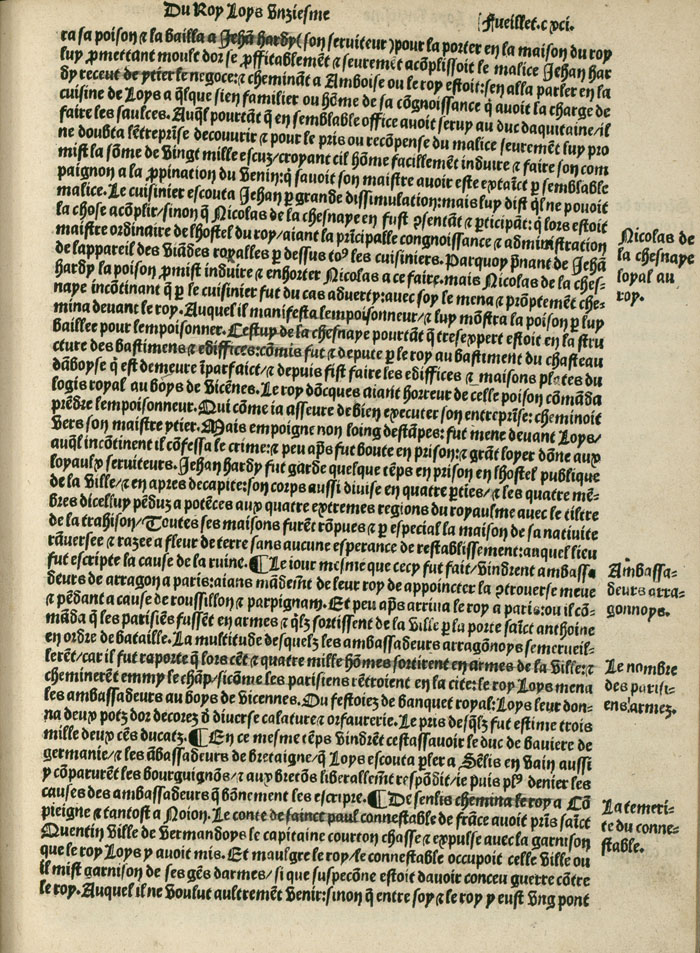 Du Roy Loys Unziesme
Fueillet.cxci.
ra sa poison / ⁊ la bailla a Jehā hardy (son seruiteur) pour la porter en la maison du roy
luy ꝓmettant moult dor se ꝓffitablemēt ⁊ seuremēt acōplissoit le malice Jehan har
dy receut de ytier le negoce: ⁊ chemināt a Amboise ou le roy estoit: sen alla parler en la
cuisine de Loys a q̄lque sien familier ou hōme de sa cōgnoissance q̄ auoit la charge de
faire les saulces. Auq̄l pourtāt q̄ en semblable office auoit seruy au duc daquitaine / il
ne doubta lētreprīse decouurir ⁊ pour le pris ou recōpense du malice seuremēt luy pro
mist la sōme de Vingt mille escuz / croyant cil hōme facillemēt induire ⁊ faire son com
paignon a la ꝓpination du Venin: q̄ sauoit son maistre auoir este extaīct ꝑ semblable
malice. Le cuisinier escouta Jehan ꝑ grande dissimulation: mais luy dist q̄l ne pouoit
la chose acōplir / sinon q̄ Nicolas de la chesnaye en fust ꝯsentāt ⁊ ꝑticipāt: q̄ lors estoit
maistre ordinaire de lhostel du roy / aiant la prīcipalle congnoissance ⁊ administration
de lappareil des Viādes royalles ꝑ dessus to⁹ les cuisiniers. Parquoy p̄nant de Jehā
hardy la poison ꝓmist induire ⁊ enhorter Nicolas a ce faire. mais Nicolas de la ches-
naye incōtinant q̄ ꝑ le cuisinier fut du cas aduerty: auec soy le mena ⁊ prōptemēt che-
mina deuant le roy. Auquel il manifesta lempoisonneur / ⁊ luy mōstra la poison ꝑ luy
baillee pour lempoisonner. Cestuy de la chesnaye pourtāt q̄ tresexpert estoit en la stru
cture des bastimens ⁊ ediffices: cōmis fut ⁊ depute ꝑ le roy au bastiment du chasteau
dāboyse q̄ est demeure īparfaict / ⁊ depuis fist faire les ediffices ⁊ maisons plates du
logis royal au boys de Vicēnes. Le roy dōcques aiant horreur de celle poison cōmāda
prēdre lempoisonneur. Qui cōme ia asseure de bien executer son entreprīse: cheminoit
Vers son maistre ytier. Mais empoigne non loing destāpes: fut mene deuant Loys /
auq̄l incōtinent il cōfessa le crime: ⁊ peu ap̄s fut boute en prison: ⁊ grāt loyer dōne aux
loyaulx seruiteurs. Jehan hardy fut garde quelque tēps en prison en lhostel publique
de la Ville / ⁊ en apres decapite: son corps aussi diuise en quatre ꝑties / ⁊ les quatre mē-
bres dicelluy pēduz a potēces aux quatre extremes regions du royaulme auec le tiltre
de la trahison / Toutes ses maisons furēt rōpues ⁊ ꝑ especial la maison de sa natiuite
rāuersee ⁊ razee a fleur de terre sans aucune esperance de restablissement: anquel lieu
fut escripte la cause de la ruine. ¶ Le iour mesme que cecy fut fait / Vindrent ambassa
deurs de arragon a paris: aians mādemt̄ de leur roy de appoincter la ꝯtrouerse meue
⁊ pēdant a cause de roussillon ⁊ parpignam. Et peu ap̄s arriua le roy a paris: ou il cō-
māda q̄ les parisiēs fussēt en armes ⁊ q̄lz sortissent de la Ville ꝑ la porte saīct anthoine
en ordre de bataille. La multitude desquelz les ambassadeurs arragōnoys semerueil-
lerēt / car il fut raporte q̄ lors cēt ⁊ quatre mille hōmes sortirent en armes de la Ville: ⁊
cheminerēt emmy le chāp / sicōme les parisiens rētroient en la cite: le roy Loys mena
les ambassadeurs au boys de Vicennes. Ou festoiez de banquet royal: Loys leur don-
na deux potz dor decorez ð diuerse calature ⁊ orfaurerie. Le pris desq̄lz fut estime trois
mille deux cēs ducatz. ¶ En ce mesme tēps Vindrēt cestassauoir le duc de bauiere de
germanie / ⁊ les ābassadeurs de bretaigne / q̄ Loys escouta ꝑler a Sēlis en Vain aussi
y cōparurēt les bourguignōs / ⁊ aux bretōs liberallemt̄ respōdit / ie puis pl⁹ denier les
causes des ambassadeurs q̄ bōnement les escripre. ¶ De senlis chemina le roy a Cō
pieigne ⁊ tantost a Noion. Le conte de sainct paul connestable de frāce auoit prīs saīct
Quentin Ville de Vermandoys le capitaine courton chasse ⁊ expulse auec la garnison
que le roy Loys y auoit mis. Et maulgre le roy / le connestable occupoit celle Ville ou
il mist garnison de ses gēs darmes / si que suspecōne estoit dauoir conceu guerre cōtre
le roy. Auquel il ne Voulut aultremēt Venir: sinon q̄ entre soy ⁊ le roy y eust Vng pont
Nicolas de
la chesnaye
loyal au
roy.
Ambassa-
deurs arra-
gonnoys.
Le nombre
des parisi-
ens armez.
La temeri-
te du conne-
stable.